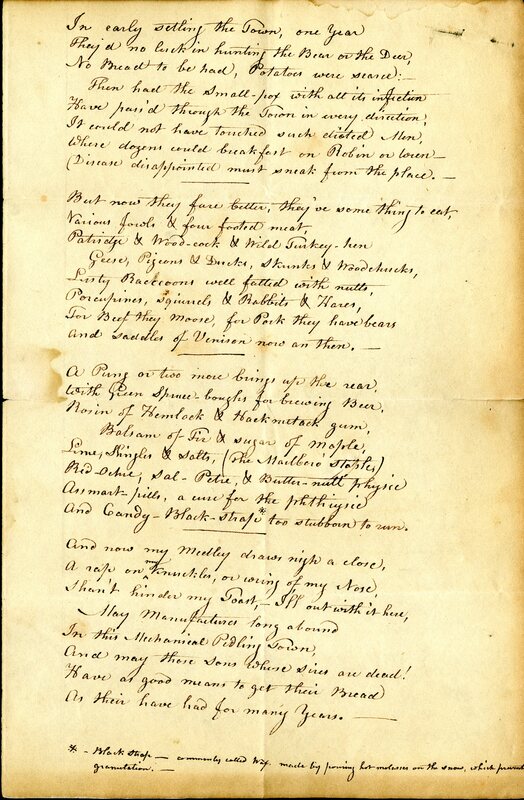 In early setling the Town, one Year
They'd no luck in hunting the Bear or the Deer,
No Bread to be had, Potatoes were scarce:—
Then had the Small-pox with all its infection
Have pass'd through the Town in every direction,
It could not have touched such dieted Men,
Where dozens could breakfast on Robin or Wren—
(Disease disappointed must sneak from the place. —
But now they fare better, they've some thing to eat,
Various fowls & four footed meat,
Patridge & Wood-cock & Wild Turkey-hen
Geese, Pigeons & Ducks, Skunks & Woodchucks,
Lusty Raccoons well fatted with nutts,
Porcupines, Squirrels & Rabbits & Hares,
For Beef they Moose, for Pork they have bears
And saddles of Venison now an then. —
A Pung or two more brings up the rear,
With Green Spruce-boughs for brewing Beer.
Rosin of Hemlock & Hackmetack gum,
Balsam of Fir & sugar of Maple,
Lime, Shingles & Salts, (The Marlboro Staples)
Red-Ochre, Sal-Petre, & Butter-nutt physic
Assmart-pills, a cure for the phthysic
And Candy-Black-strap* too stubborn to run.
And now my Medley draws nigh a close,
A rap on my knuckles, or wring of my Nose,
Shan't hinder my Toast,— I'll out with it here,
May Manufactures long abound
In this Mechanical Pidling Town,
And may those Sons whose sires are dead!
Have as good means to get their Bread
As their have had for many Years. —
* - Black strap — commonly called Wax. made by pouring hot molasses on the snow, which
granulation. —